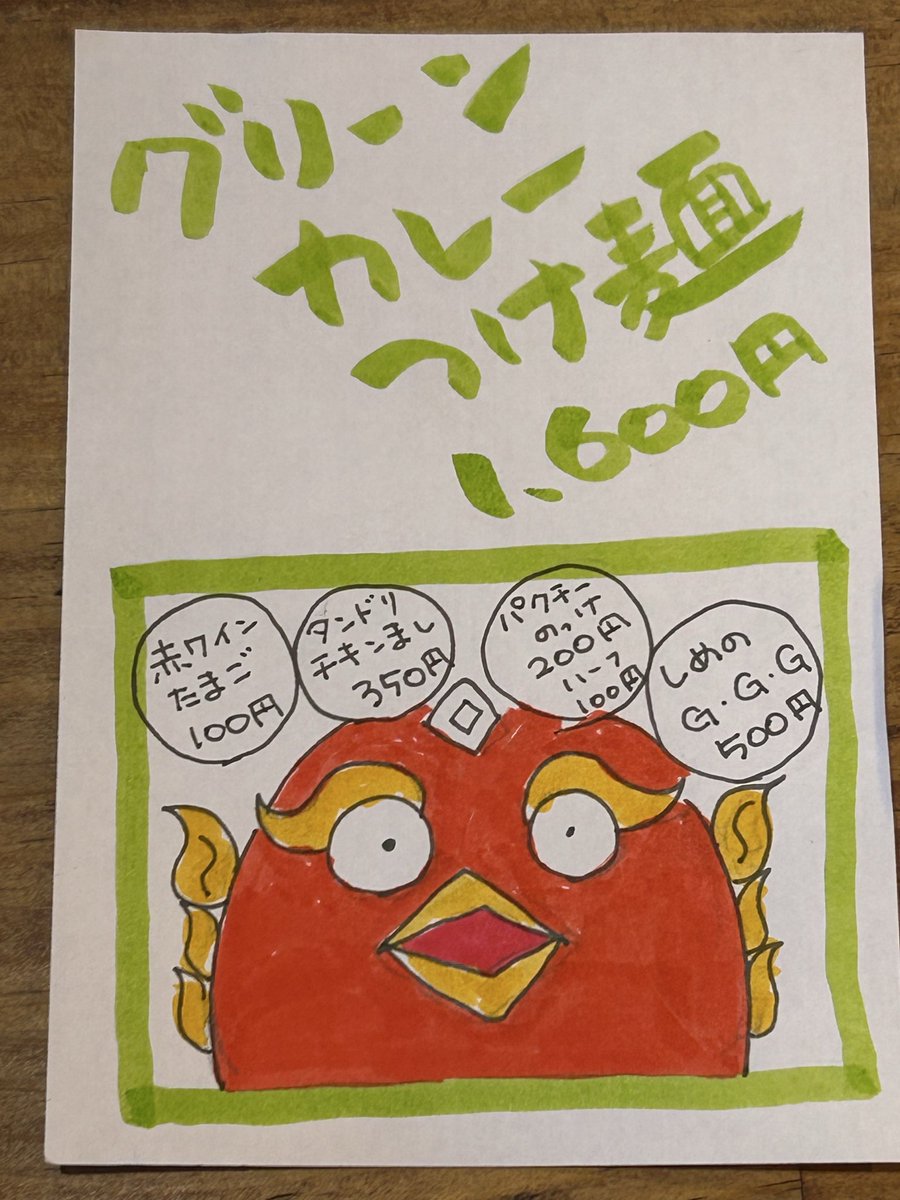 グリーン
カレー
つけ麺
1,600円
赤ワイン
たまご
100円
タンドリ
チキンまし
350円
パクチー
のっけ
200円
ハーフ
100円
しめの
G・G・G
500円